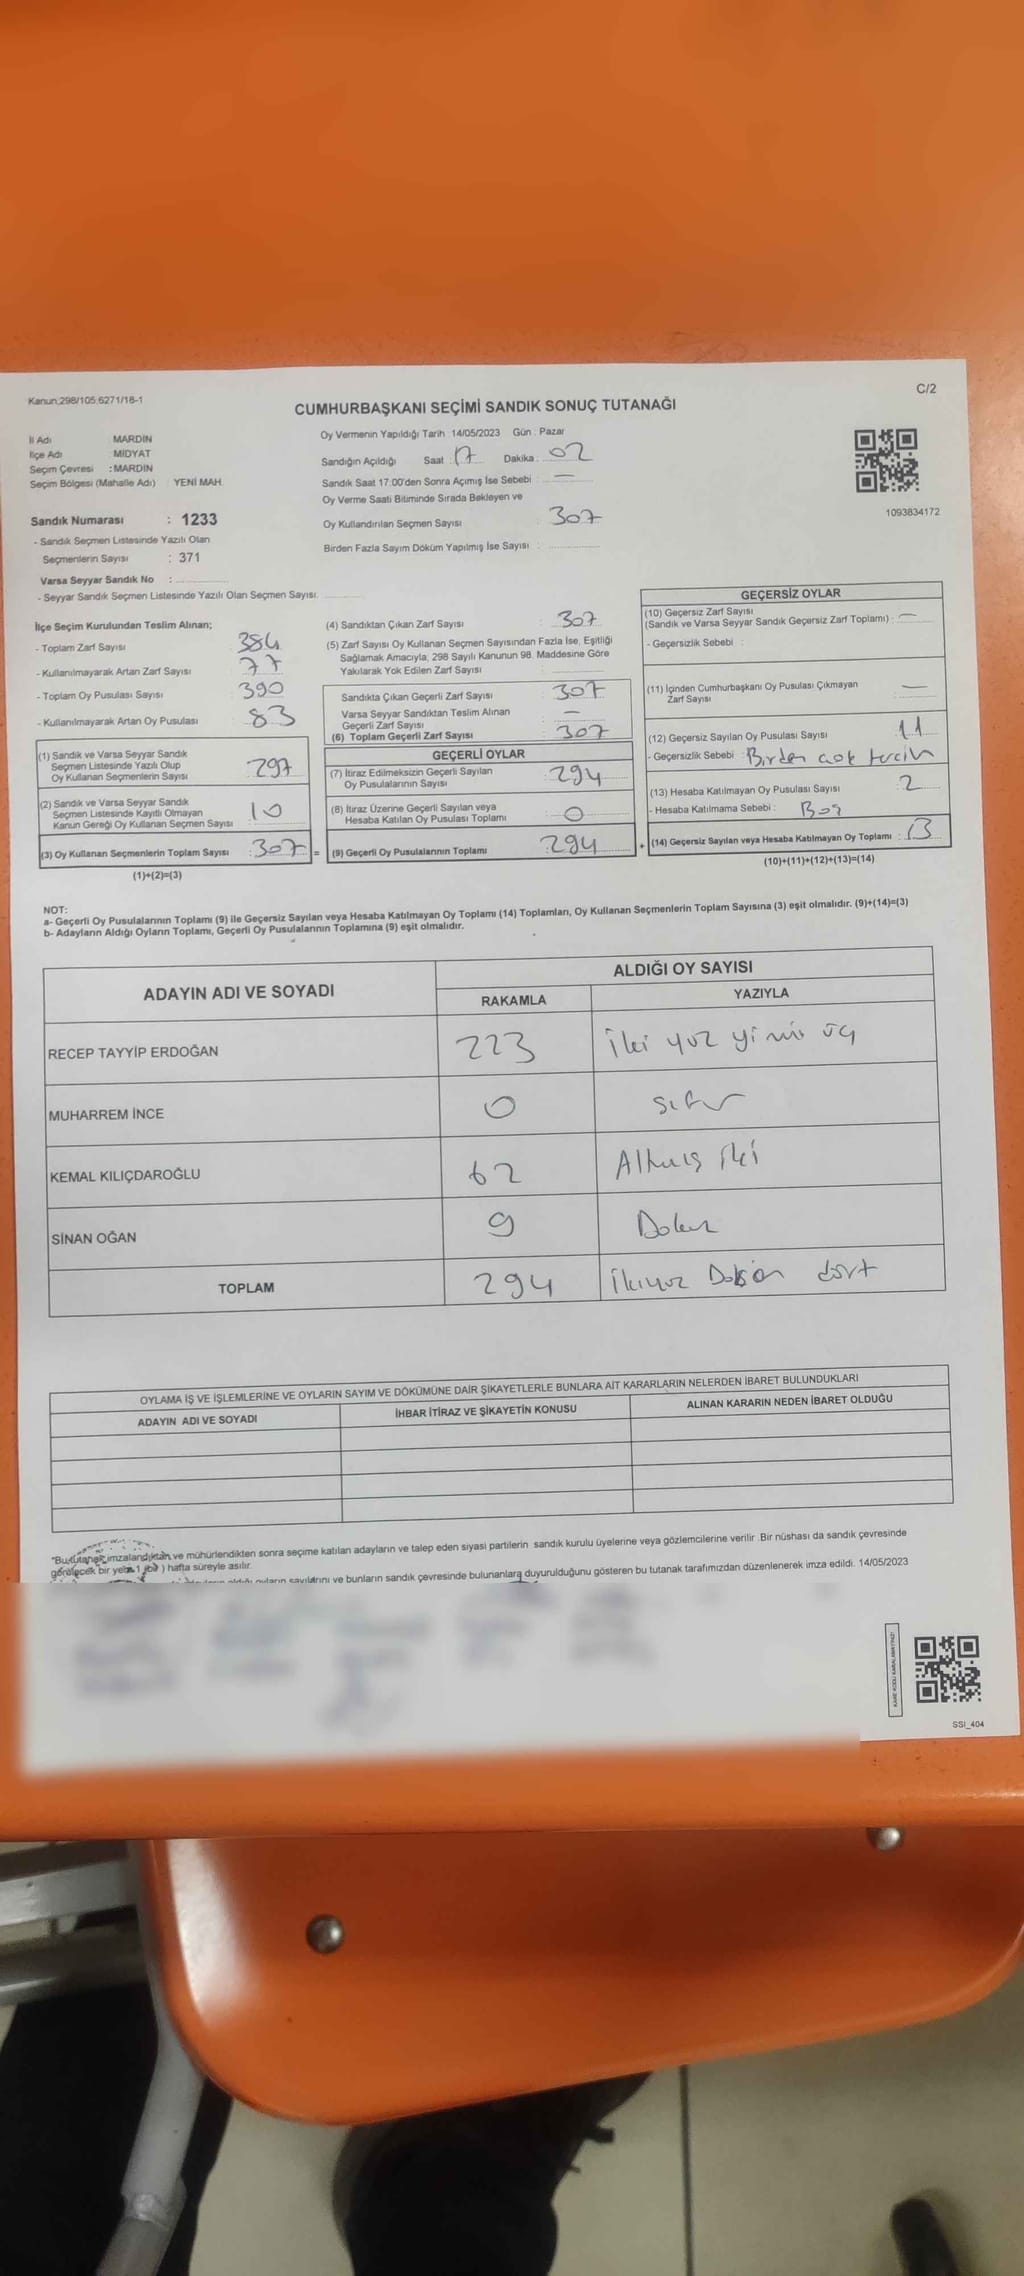 Kanun;298/105,6271/18-1
C/2
CUMHURBAŞKANI SEÇİMİ SANDIK SONUÇ TUTANAĞI
İl Adı MARDİN
İlçe Adı MİDYAT
Seçim Çevresi : MARDİN
Seçim Bölgesi (Mahalle Adı) : YENİ MAH.
Sandık Numarası : 1233
- Sandık Seçmen Listesinde Yazılı Olan
Seçmenlerin Sayısı : 371
Varsa Seyyar Sandık No :
- Seyyar Sandık Seçmen Listesinde Yazılı Olan Seçmen Sayısı:
Oy Vermenin Yapıldığı Tarih : 14/05/2023 Gün : Pazar
Sandığın Açıldığı Saat : 17 Dakika : 02
Sandık Saat 17.00'den Sonra Açımış İse Sebebi : —
Oy Verme Saati Bitiminde Sırada Bekleyen ve
Oy Kullandırılan Seçmen Sayısı : 307
Birden Fazla Sayım Döküm Yapılmış İse Sayısı :
1093834172
İlçe Seçim Kurulundan Teslim Alınan;
- Toplam Zarf Sayısı 384
- Kullanılmayarak Artan Zarf Sayısı 77
- Toplam Oy Pusulası Sayısı 390
- Kullanılmayarak Artan Oy Pusulası : 83
(1) Sandık ve Varsa Seyyar Sandık
Seçmen Listesinde Yazılı Olup
Oy Kullanan Seçmenlerin Sayısı 297
(2) Sandık ve Varsa Seyyar Sandık
Seçmen Listesinde Kayıtlı Olmayan
Kanun Gereği Oy Kullanan Seçmen Sayısı 10
(3) Oy Kullanan Seçmenlerin Toplam Sayısı : 307 =
(1)+(2)=(3)
(4) Sandıktan Çıkan Zarf Sayısı : 307
(5) Zarf Sayısı Oy Kullanan Seçmen Sayısından Fazla İse, Eşitliği
Sağlamak Amacıyla, 298 Sayılı Kanunun 98. Maddesine Göre
Yakılarak Yok Edilen Zarf Sayısı :
Sandıkta Çıkan Geçerli Zarf Sayısı : 307
Varsa Seyyar Sandıktan Teslim Alınan
Geçerli Zarf Sayısı : —
(6) Toplam Geçerli Zarf Sayısı : 307
GEÇERLİ OYLAR
(7) İtiraz Edilmeksizin Geçerli Sayılan
Oy Pusulasının Sayısı : 294
(8) İtiraz Üzerine Geçerli Sayılan veya
Hesaba Katılan Oy Pusulası Toplamı : 0
(9) Geçerli Oy Pusulalarının Toplamı 294 +
GEÇERSİZ OYLAR
(10) Geçersiz Zarf Sayısı
(Sandık ve Varsa Seyyar Sandık Geçersiz Zarf Toplamı) : —
- Geçersizlik Sebebi :
(11) İçinden Cumhurbaşkanı Oy Pusulası Çıkmayan
Zarf Sayısı —
(12) Geçersiz Sayılan Oy Pusulası Sayısı : 11
- Geçersizlik Sebebi : Birden çok tercih
(13) Hesaba Katılmayan Oy Pusulası Sayısı : 2
- Hesaba Katılmama Sebebi : Boş
(14) Geçersiz Sayılan veya Hesaba Katılmayan Oy Toplamı : 13
(10)+(11)+(12)+(13)=(14)
NOT:
a- Geçerli Oy Pusulalarının Toplamı (9) ile Geçersiz Sayılan veya Hesaba Katılmayan Oy Toplamı (14) Toplamları, Oy Kullanan Seçmenlerin Toplam Sayısına (3) eşit olmalıdır. (9)+(14)=(3)
b- Adayların Aldığı Oyların Toplamı, Geçerli Oy Pusulalarının Toplamına (9) eşit olmalıdır.
ADAYIN ADI VE SOYADI
ALDIĞI OY SAYISI
RAKAMLA YAZIYLA
RECEP TAYYİP ERDOĞAN 223 iki yüz yirmi üç
MUHARREM İNCE 0 sıfır
KEMAL KILIÇDAROĞLU 62 Altmış iki
SİNAN OĞAN 9 Dokuz
TOPLAM 294 ikiyüz Doksan dört
OYLAMA İŞ VE İŞLEMLERİNE VE OYLARIN SAYIM VE DÖKÜMÜNE DAİR ŞİKAYETLERLE BUNLARA AİT KARARLARIN NELERDEN İBARET BULUNDUKLARI
ADAYIN ADI VE SOYADI İHBAR İTİRAZ VE ŞİKAYETİN KONUSU ALINAN KARARIN NEDEN İBARET OLDUĞU
*Bu tutanak imzalandıktan ve mühürlendikten sonra seçime katılan adayların ve talep eden siyasi partilerin sandık kurulu üyelerine veya gözlemcilerine verilir. Bir nüshası da sandık çevresinde
görülecek bir yere 1 (bir) hafta süreyle asılır.
aldığı oyların sayılarını ve bunların sandık çevresinde bulunanlara duyurulduğunu gösteren bu tutanak tarafımızdan düzenlenerek imza edildi. 14/05/2023
SSI_404